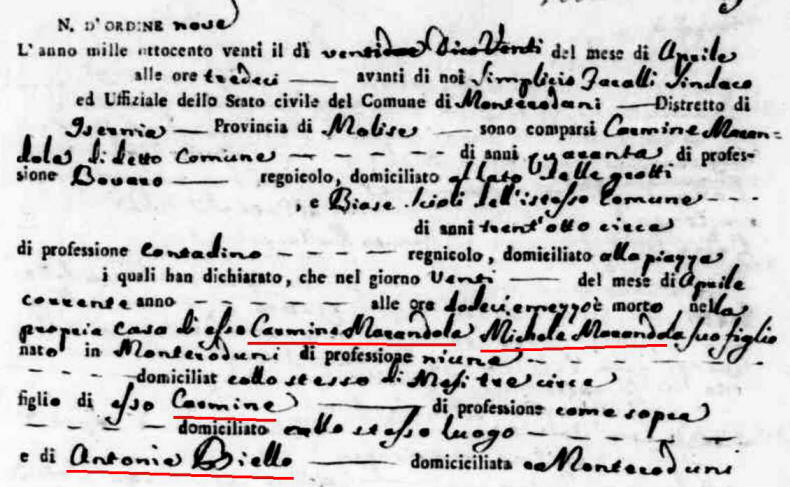 N. D'ORDINE nove
L'anno mille ottocento venti il dì ventidue Dico Venti del mese di Aprile
alle ore tredeci — avanti di noi Simplicio Jacalli Sindaco
ed Uffiziale dello Stato civile del Comune di Monteroduni — Distretto di
Isernia — Provincia di Molise — sono comparsi Carmine Maran=
dola di detto Comune — — — — di anni quaranta di profes-
sione Bovaro — regnicolo, domiciliato allato delle grotti
e Biase Scioli dell'istesso Comune - - -
di anni trent'otto circa
di professione contadino - - - - regnicolo, domiciliato alla piazza
i quali han dichiarato, che nel giorno Venti — del mese di Aprile
corrente anno - - - - - alle ore dodeci e mezzo è morto nella
propria casa di esso Carmine Marandola Michele Marandola suo figlio
nato in Monteroduni di professione niuna - - - - - -
- - - - - domiciliat collo stesso di Mesi tre circa
figlio di esso Carmine — di professione come sopra
- - - - - domiciliato nello stesso luogo - - - - - -
e di Antonia Biello — domiciciliata a Monteroduni